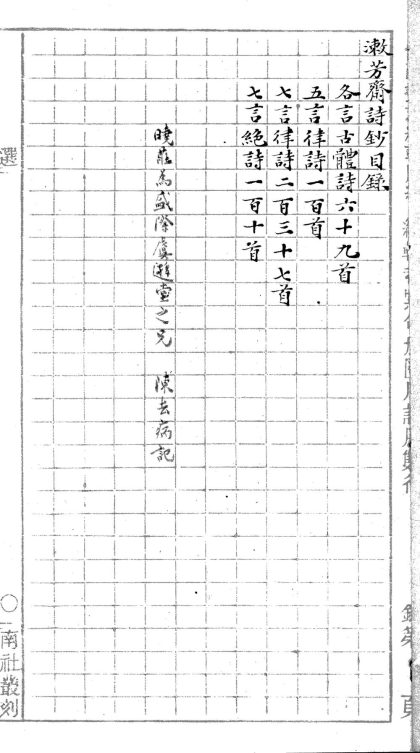 漱芳齋詩鈔目錄
各言古體詩六十九首
五言律詩一百首
七言律詩二百三十七首
七言絕詩一百十首
曉莊為盛際虞遯堂之兄 陳去病記
選
南社叢刻